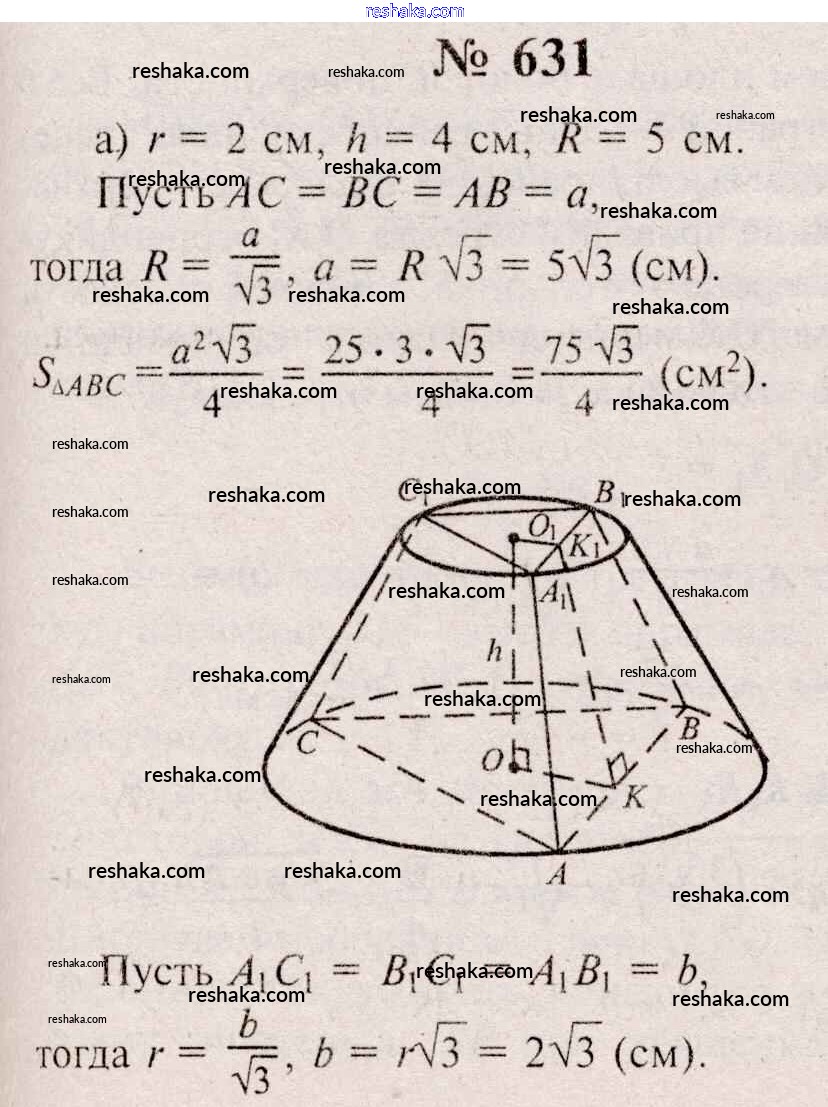 reshaka.com
№ 631
reshaka.com reshaka.com
reshaka.com reshaka.com
а) r = 2 см, h = 4 см, R = 5 см.
reshaka.com reshaka.com
Пусть AC = BC = AB = a,
reshaka.com
тогда R = a/√3, a = R √3 = 5√3 (см).
reshaka.com reshaka.com
reshaka.com
S△ABC = a²√3/4 = 25 · 3 · √3/4 = 75 √3/4 (см²).
reshaka.com reshaka.com reshaka.com
reshaka.com
reshaka.com reshaka.com reshaka.com
C₁ B₁
reshaka.com
O₁ K₁
reshaka.com
reshaka.com reshaka.com
A₁
h
reshaka.com reshaka.com reshaka.com
reshaka.com
C B
reshaka.com
O K
reshaka.com reshaka.com
A
reshaka.com reshaka.com reshaka.com
Пусть A₁C₁ = B₁C₁ = A₁B₁ = b,
reshaka.com reshaka.com
reshaka.com reshaka.com
reshaka.com
тогда r = b/√3, b = r√3 = 2√3 (см).